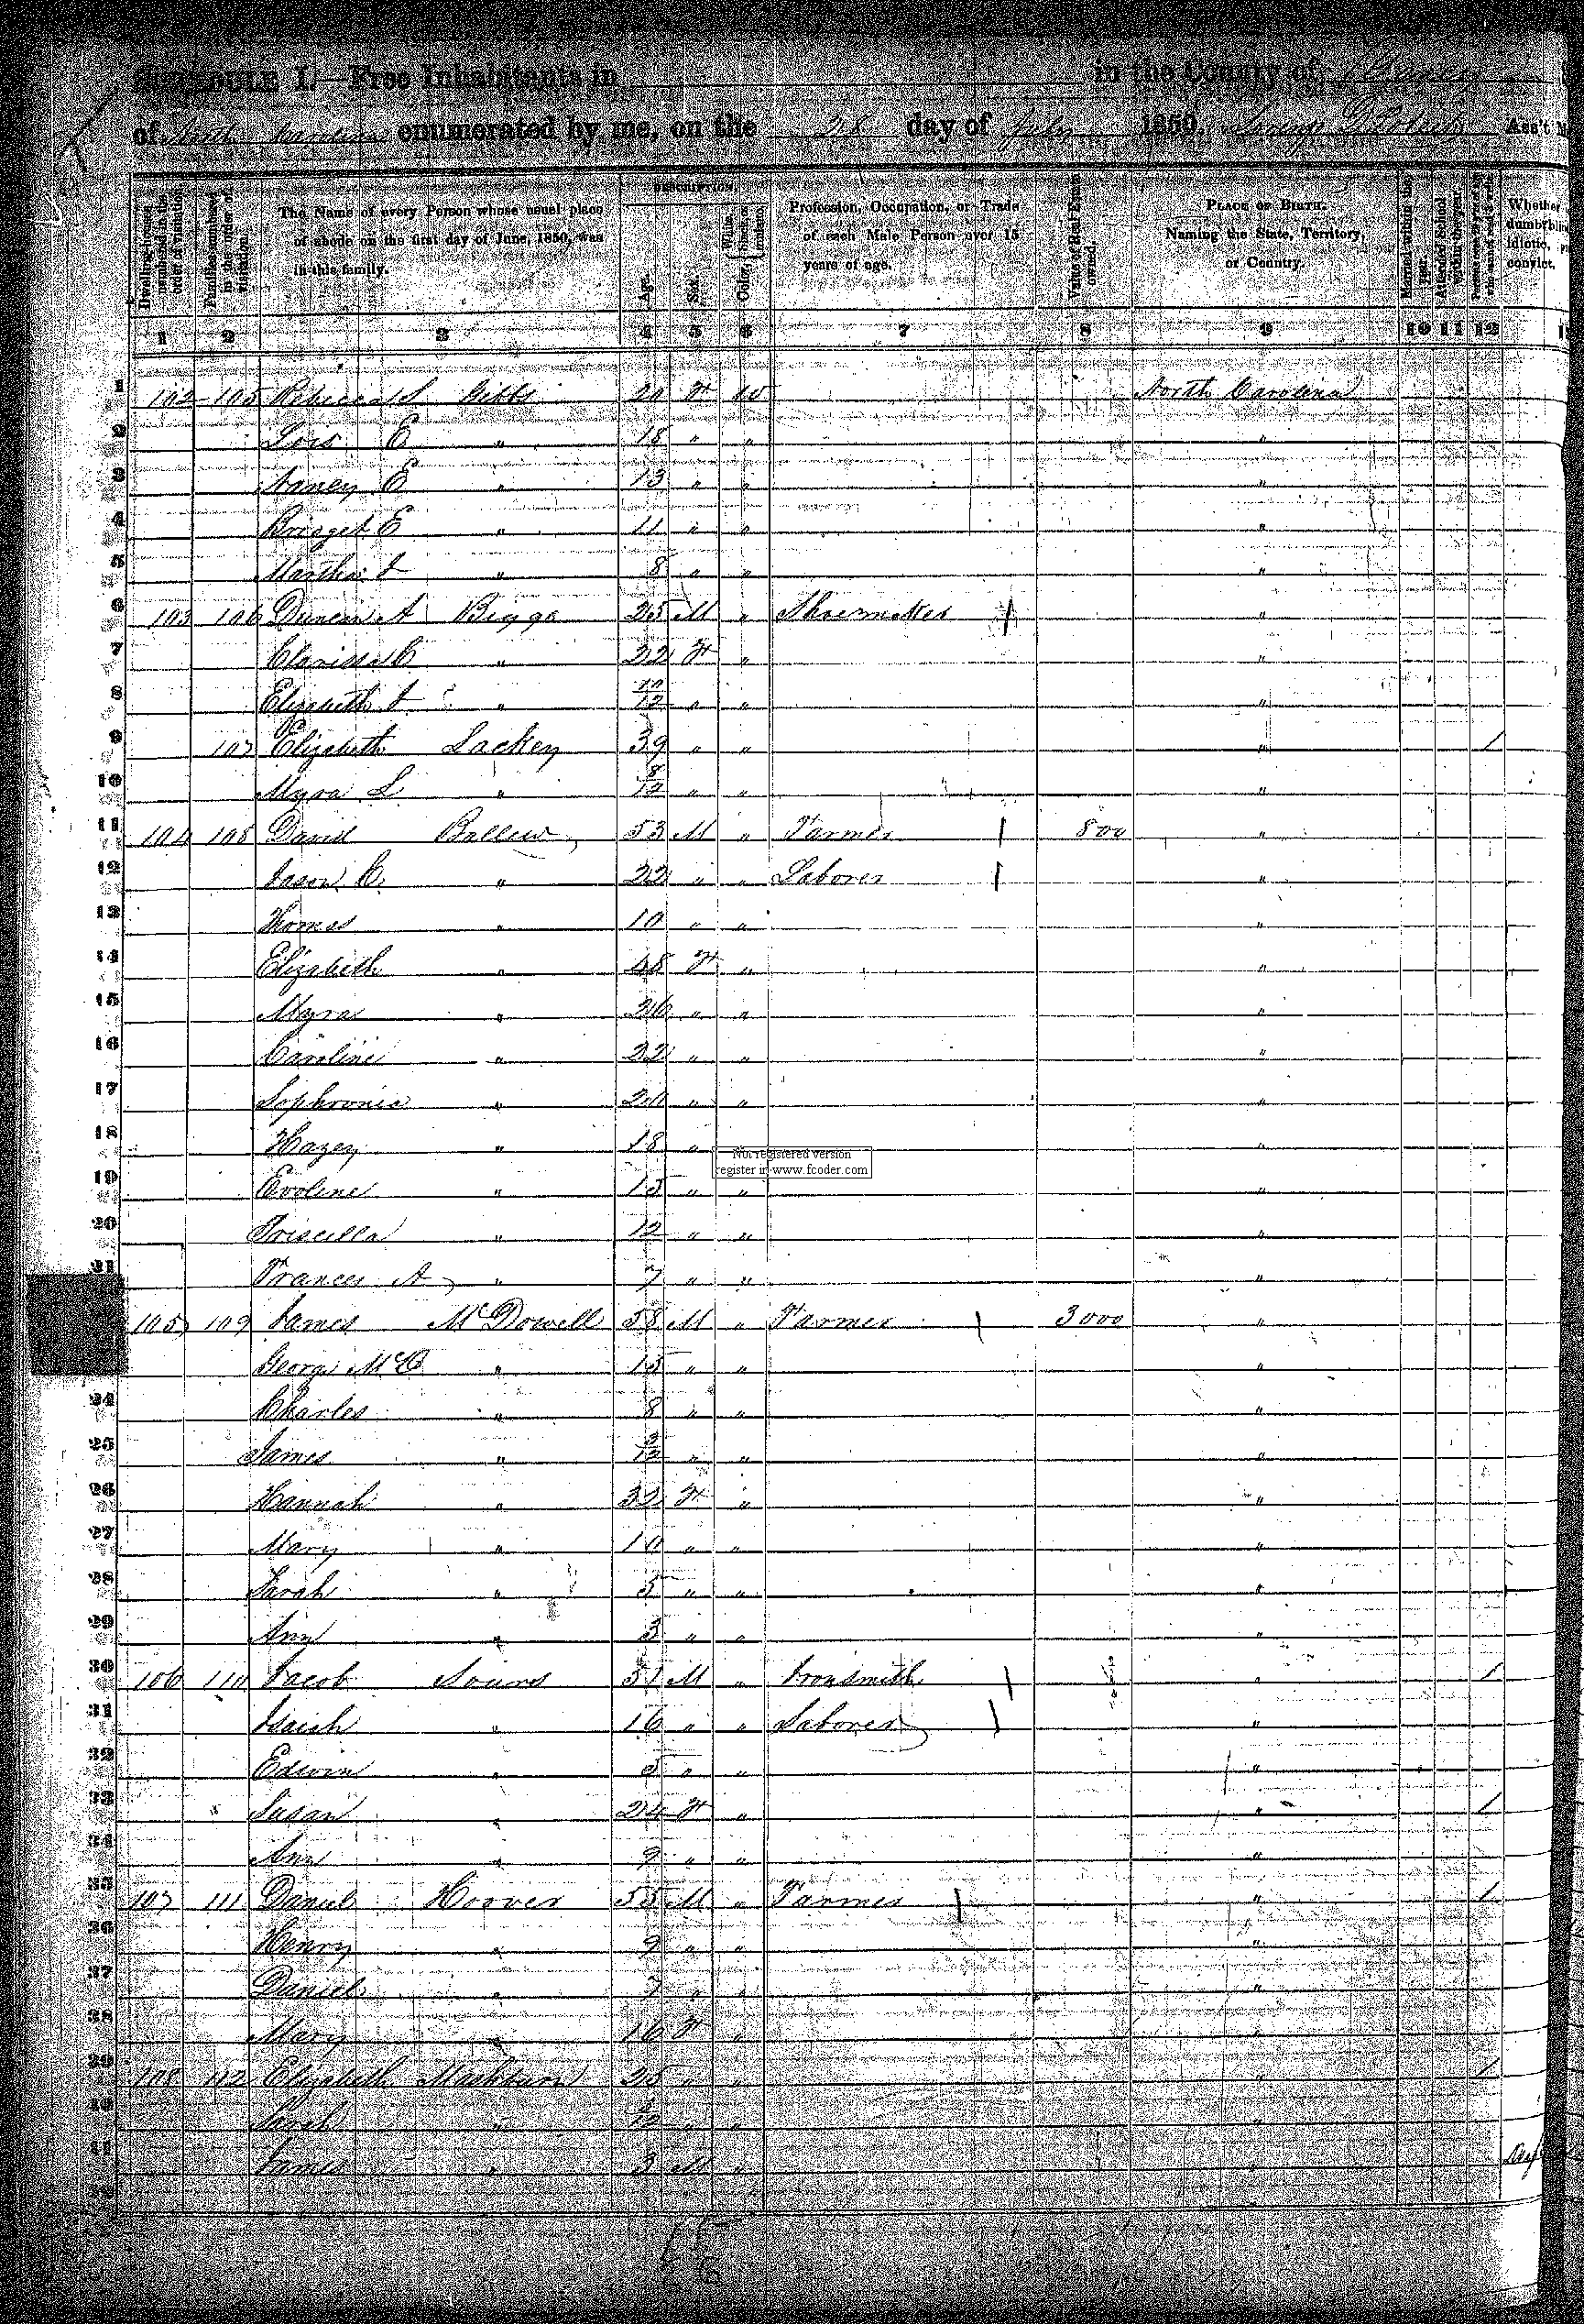 SCHEDULE I.—Free Inhabitants in in the County of
of North Carolina enumerated by me, on the 28 day of July 1850. Ass't M
Dwelling-houses numbered in the order of visitation.
Families numbered in the order of visitation.
The Name of every Person whose usual place of abode on the first day of June, 1850, was in this family.
DESCRIPTION.
Age.
Sex.
Color, White, black, or mulatto.
Profession, Occupation, or Trade of each Male Person over 15 years of age.
Value of Real Estate owned.
PLACE OF BIRTH. Naming the State, Territory, or Country.
Married within the year.
Attended School within the year.
Persons over 20 y'rs of age who cannot read & write.
Whether dumb, blind, idiotic, convict.
1 2 3 4 5 6 7 8 9 10 11 12 1
1 102 105 Rebecca S Gibbs 20 F W North Carolina
2 Lois E " 18 " " "
3 Nancy E " 13 " " "
4 Bridget E " 11 " " "
5 Martha J " 8 " " "
6 103 106 Duncan A Biggs 25 M " Shoemaker "
7 Clarissa C " 22 F " "
8 Elizabeth J " 10/12 " " "
9 107 Elizabeth Lackey 39 " " " /
10 Myra L " 8/12 " " "
11 104 108 David Ballew 53 M " Farmer 800 "
12 Jason C. " 22 " " Laborer "
13 Thomas " 10 " " "
14 Elizabeth " 48 F " "
15 Myra " 26 " " "
16 Caroline " 22 " " "
17 Sophronia " 20 " " "
18 Hazey " 18 " "
Not registered version
register in www.fcoder.com
19 Eveline " 15 " " "
20 Priscilla " 12 " " "
21 Frances A " 7 " " "
105 109 James McDowell 58 M " Farmer 3000 "
George McC " 15 " " "
24 Charles " 8 " " "
25 James " 3/12 " " "
26 Hannah " 32 F " "
27 Mary " 10 " " "
28 Sarah " 5 " " "
29 Ann " 3 " " "
30 106 110 Jacob 51 M " Ironsmith " /
31 Isaiah " 16 " " Laborer "
32 Edwin " 5 " " "
33 Susan " 24 F " " /
34 Ann " 9 " " "
35 107 111 Daniel Hoover 55 M " Farmer " /
36 Henry " 9 " " "
37 Daniel " 7 " " "
38 Mary " 16 F " "
39 108 112 Elizabeth Mashburn 25 " " " /
40 Sarah " " " "
41 James " 3 M " "